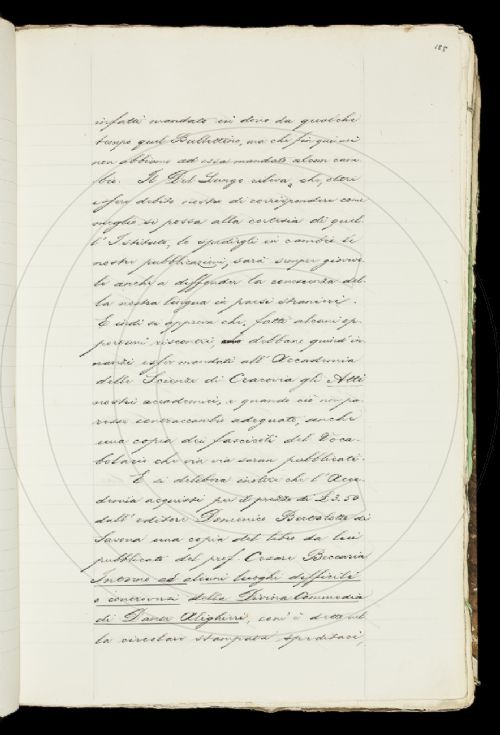 185
infatti mandato in dono da qualche
tempo quel Bullettino, ma che fin qui noi
non abbiamo ad essa mandato alcun cam-
bio. Il Del Lungo rileva, che, oltre
esser debito nostro di corrispondere come
meglio si possa alla cortesia di quel-
l'Istituto, lo spedirgli in cambio le
nostre pubblicazioni, sarà sempre giovevo-
le anche a diffonder la conoscenza del-
la nostra lingua in paesi stranieri.
E indi si approva che, fatti alcuni op-
portuni riscontri, debbano quindi in-
nanzi esser mandati all'Accademia
delle Scienze di Cracovia gli Atti
nostri accademici, e quando ciò non pa-
resse contraccambio adeguato, anche
una copia dei fascicoli del Voca-
bolario che via via saran pubblicati.
E si delibera inoltre che l'Acca-
demia acquisti per il prezzo di £ 3.50
dall'editore Domenico Bertolotto di
Savona una copia del libro da lui
pubblicato del prof. Cesare Beccaria
Intorno ad alcuni luoghi difficili
o controversi della Divina Commedia
di Dante Alighieri, com'è detto nel-
la circolare stampata speditaci,